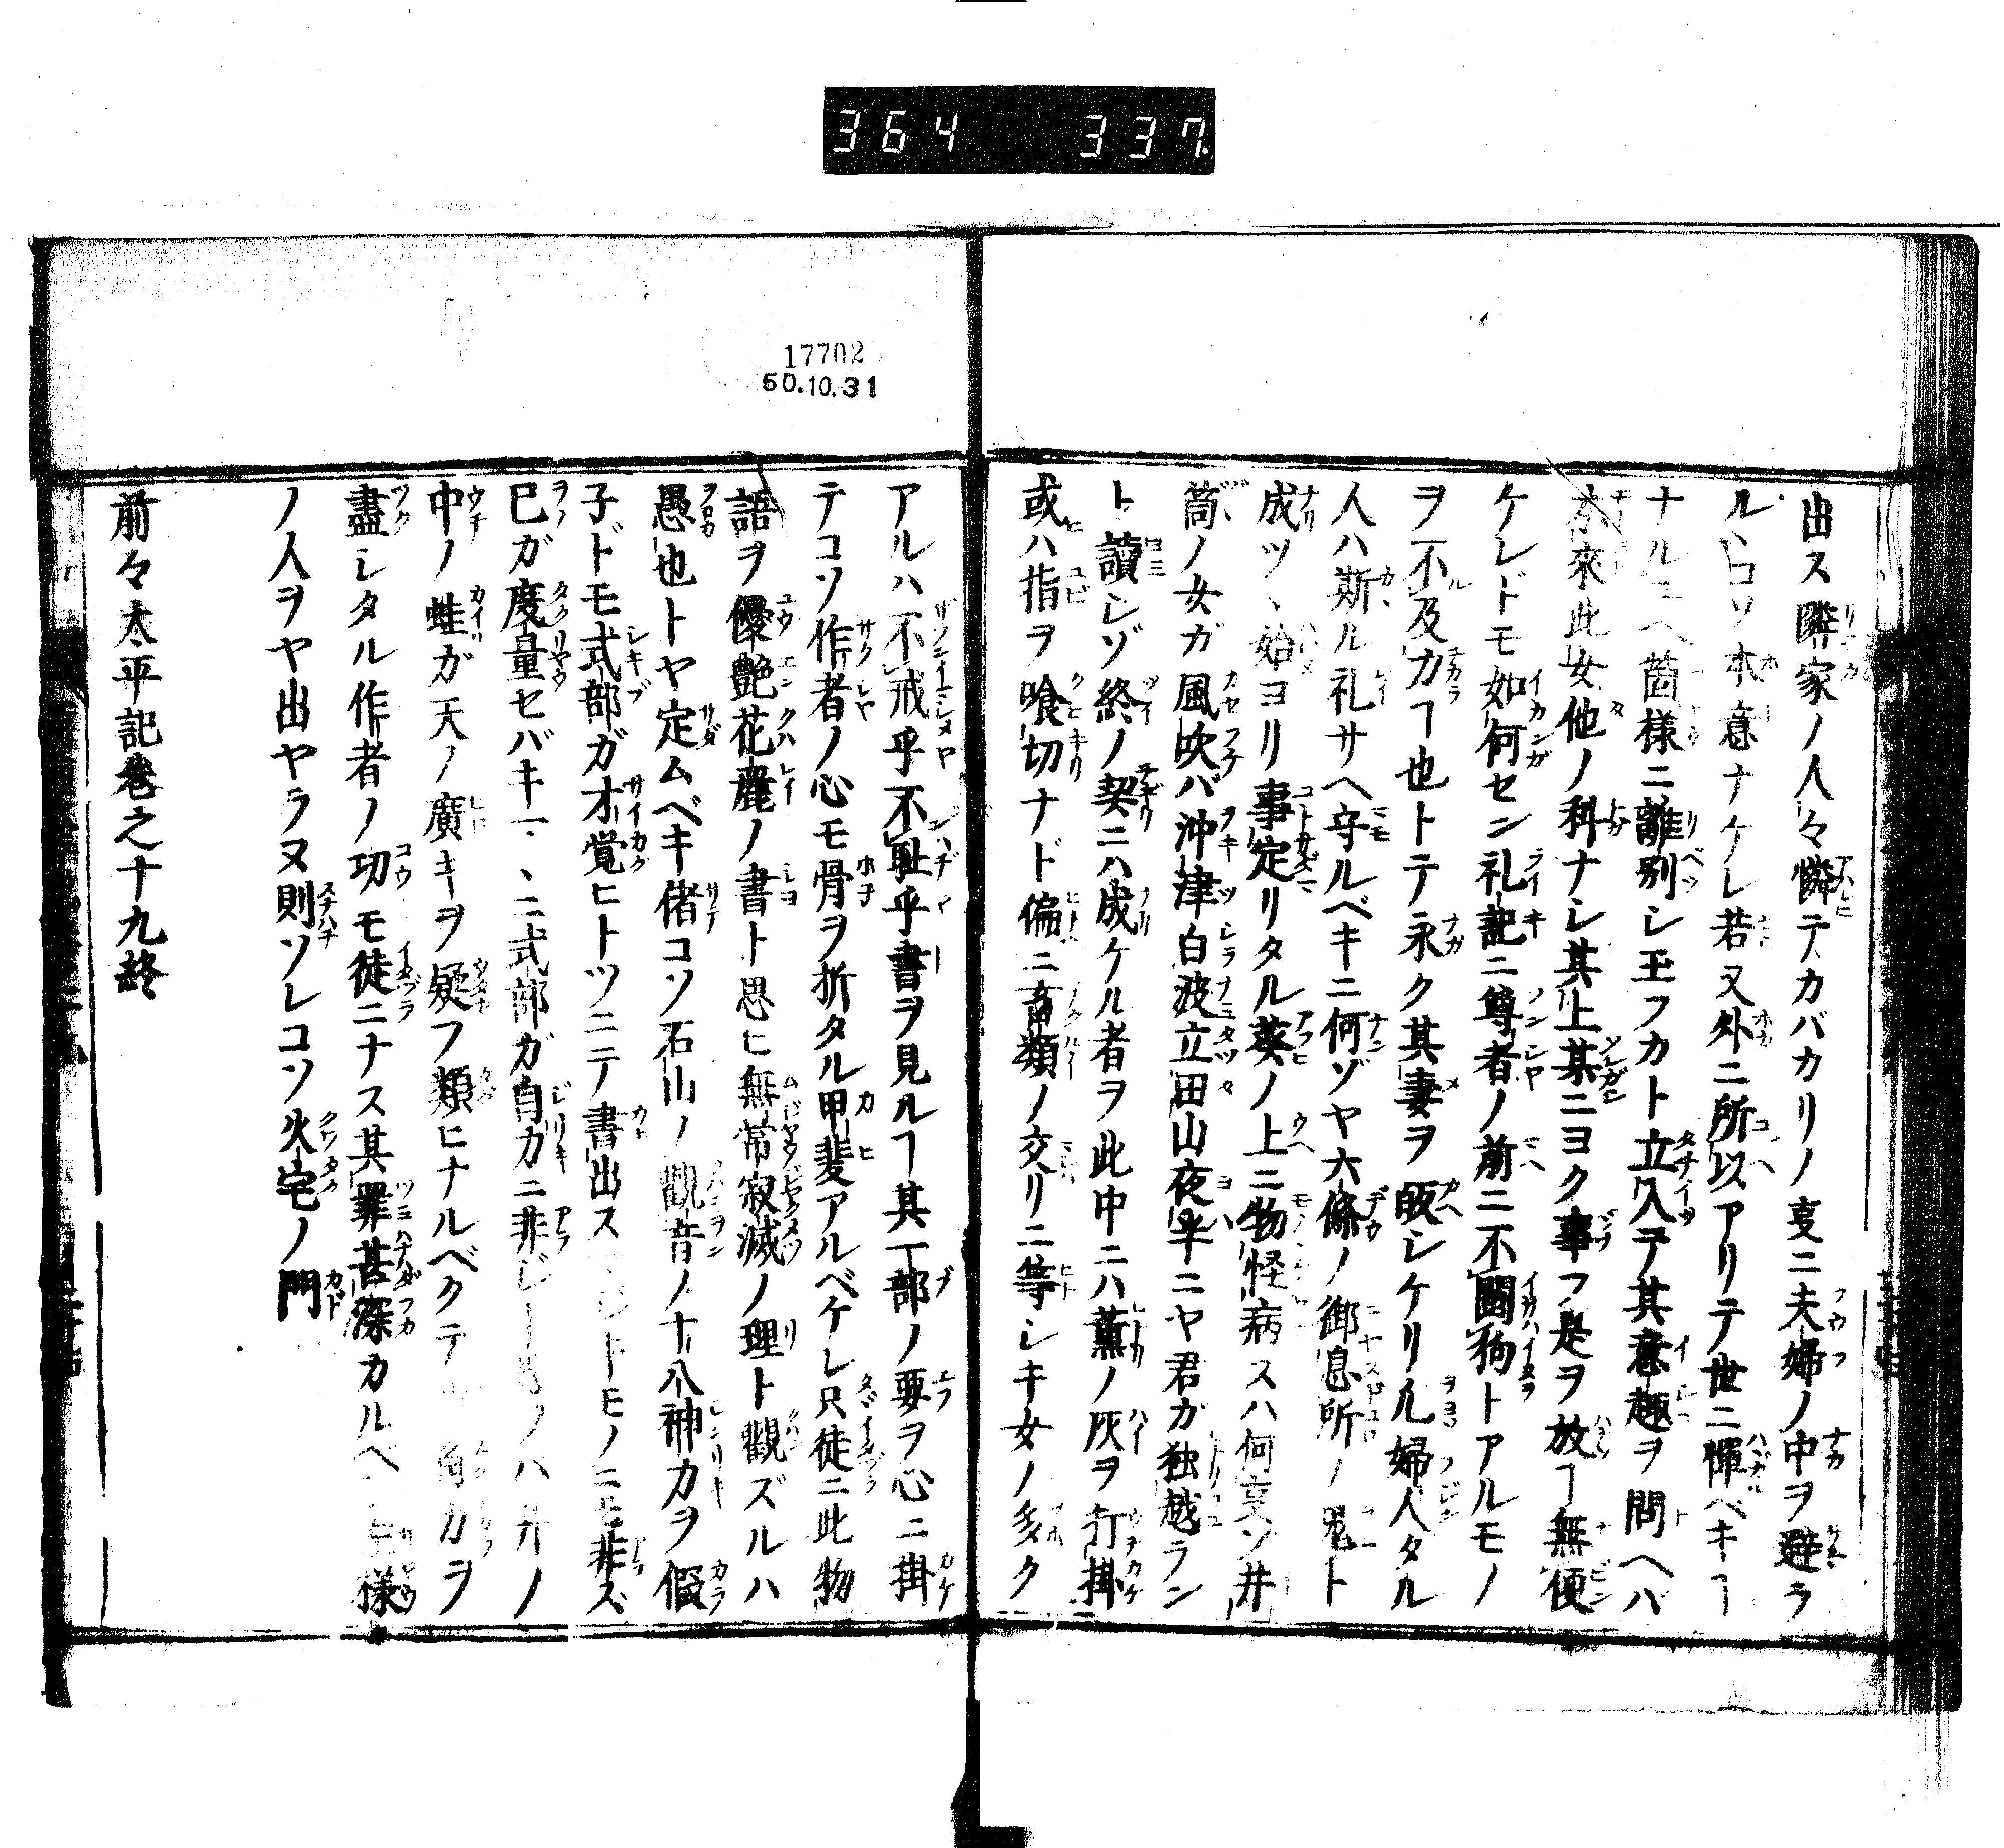 364 337
17702
50.10.31
出ス隣家ノ人々憐テカバカリノ叓ニ夫婦ノ中ヲ避ラ
ルヽコソ本意ナケレ若又外ニ所以アリテ世ニ憚ベキヿ
ナルユヘ箇様ニ離別シ玉フカト立入テ其意趣ヲ問ヘバ
本來此女他ノ科ナシ其上某ニヨク事フ是ヲ放ヿ無便
ケレドモ如何セン礼記ニ尊者ノ前ニ不圖狗トアルモノ
ヲ不及力ヿ也トテ永ク其妻ヲ皈シケリ凡婦人タル
人ハ斯ル礼サヘ守ルベキニ何ゾヤ六條ノ御息所ノ鬼ト
成ツヽ始ヨリ事定リタル葵ノ上ニ物怪病スハ何叓ソ井
筒ノ女ガ風吹バ沖津白波立田山夜半ニヤ君ガ独越ラン
ト讀シゾ終ノ契ニハ成ケル者ヲ此中ニハ薫ノ灰ヲ打掛
或ハ指ヲ喰切ナド偏ニ畜類ノ交リニ等シキ女ノ多ク
アルハ不戒乎不恥乎書ヲ見ルヿ其一部ノ要ヲ心ニ掛
テコソ作者ノ心モ骨ヲ折タル甲斐アルベケレ只徒ニ此物
語ヲ優艶花麗ノ書ト思ヒ無常寂滅ノ理ト觀ズルハ
愚也トヤ定ムベキ偖コソ石山ノ觀音ノ十八神力ヲ假
子ドモ式部ガ才覚ヒトツニテ書出スマジトモノニモ非ズ
已ガ度量セバキ一ヽニ式部ガ自力ニ非ジト云フハ井ノ
中ノ蛙ガ天ノ廣キヲ疑フ類ヒナルベクテ 角カヲ
盡シタル作者ノ功モ徒ニナス其罪甚深カルベシ 様
ノ人ヲヤ出ヤラヌ則ソレコソ火宅ノ門
前々太平記巻之十九終